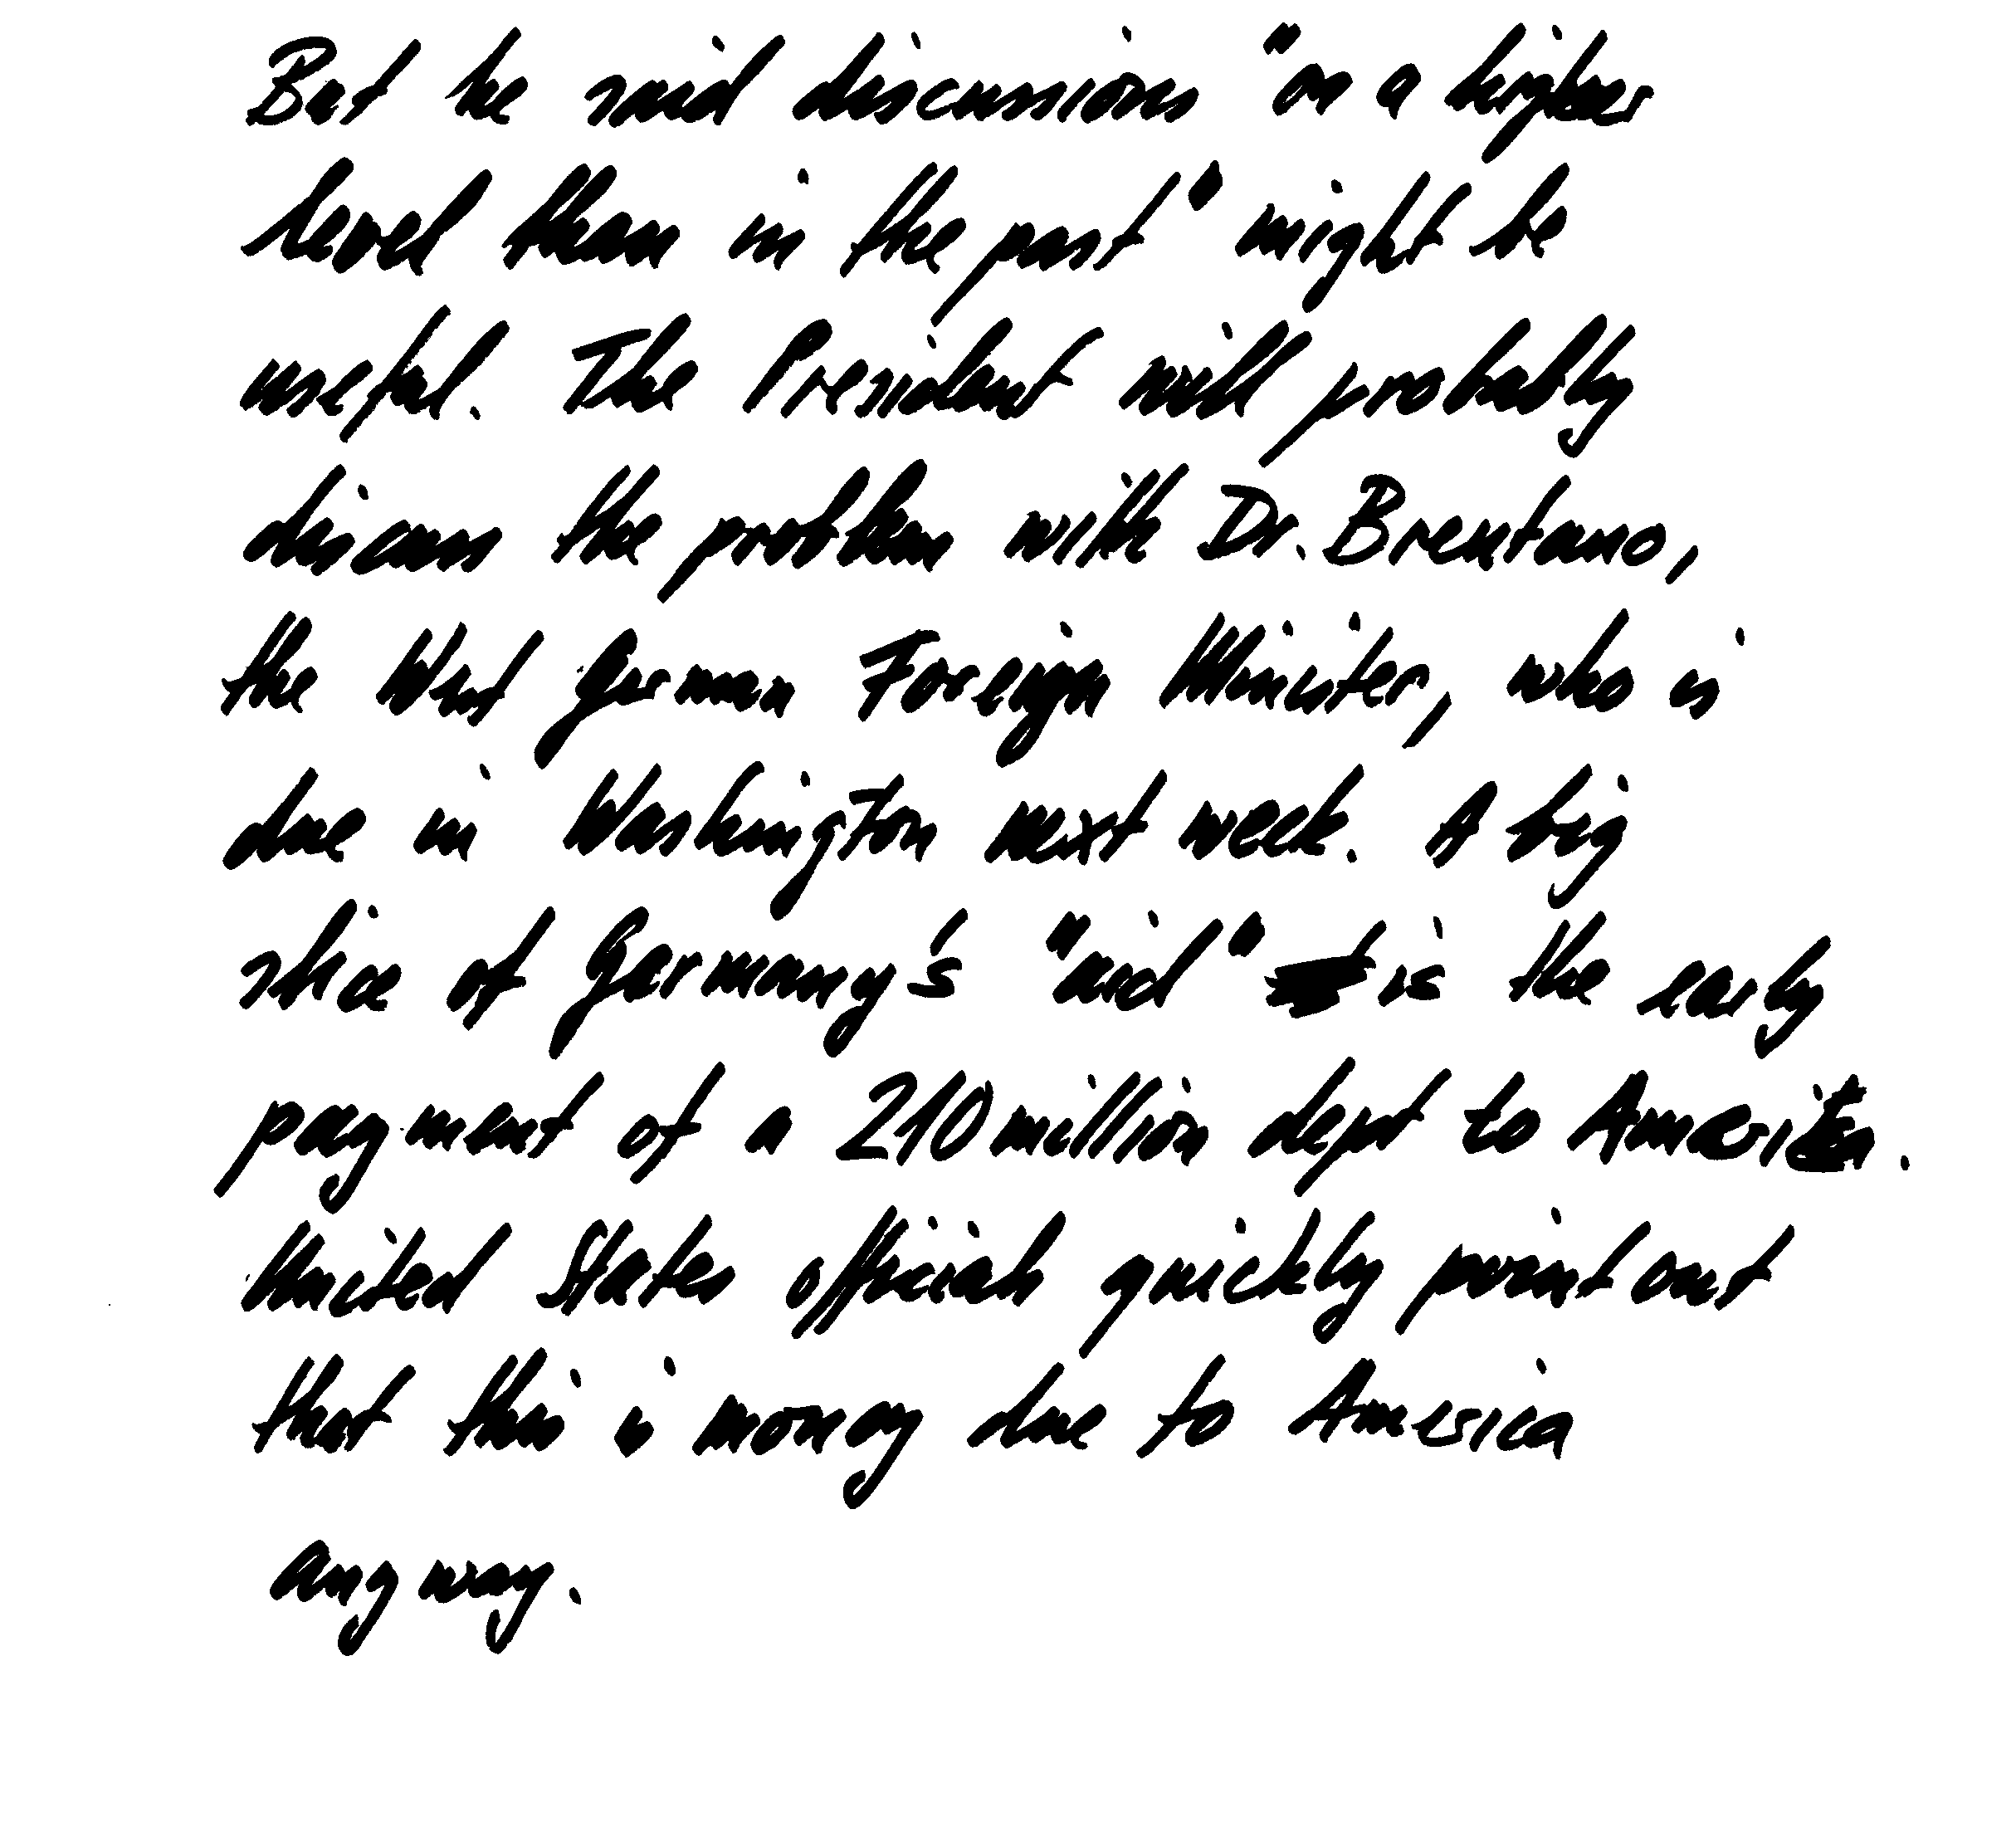 But he said discussions "on a higher
level than in the past" might be
useful. The President will probably
discuss the problem with Dr. Brentano,
the West German Foreign Minister, who is
due in Washington next week. A big
slice of Germany's "aid" is the early
payment of a 210 million dept to America.
United States officials quickly point out
that this is money due to America
anyway.